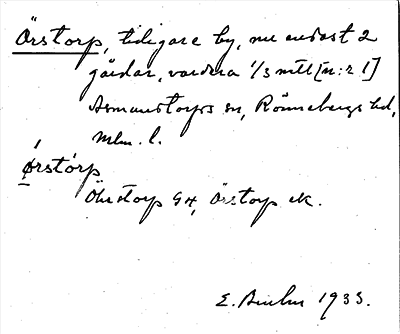 Örstorp, tidigare by, nu endast 2
gårdar, vardera 1/3 mtl [n:r 1]
Asmundtorps sn, Rönnebergs hd,
Mlm. l.
ǿrstòrp
Öhrstorp GK, Örstorp ek.
E. 1933.